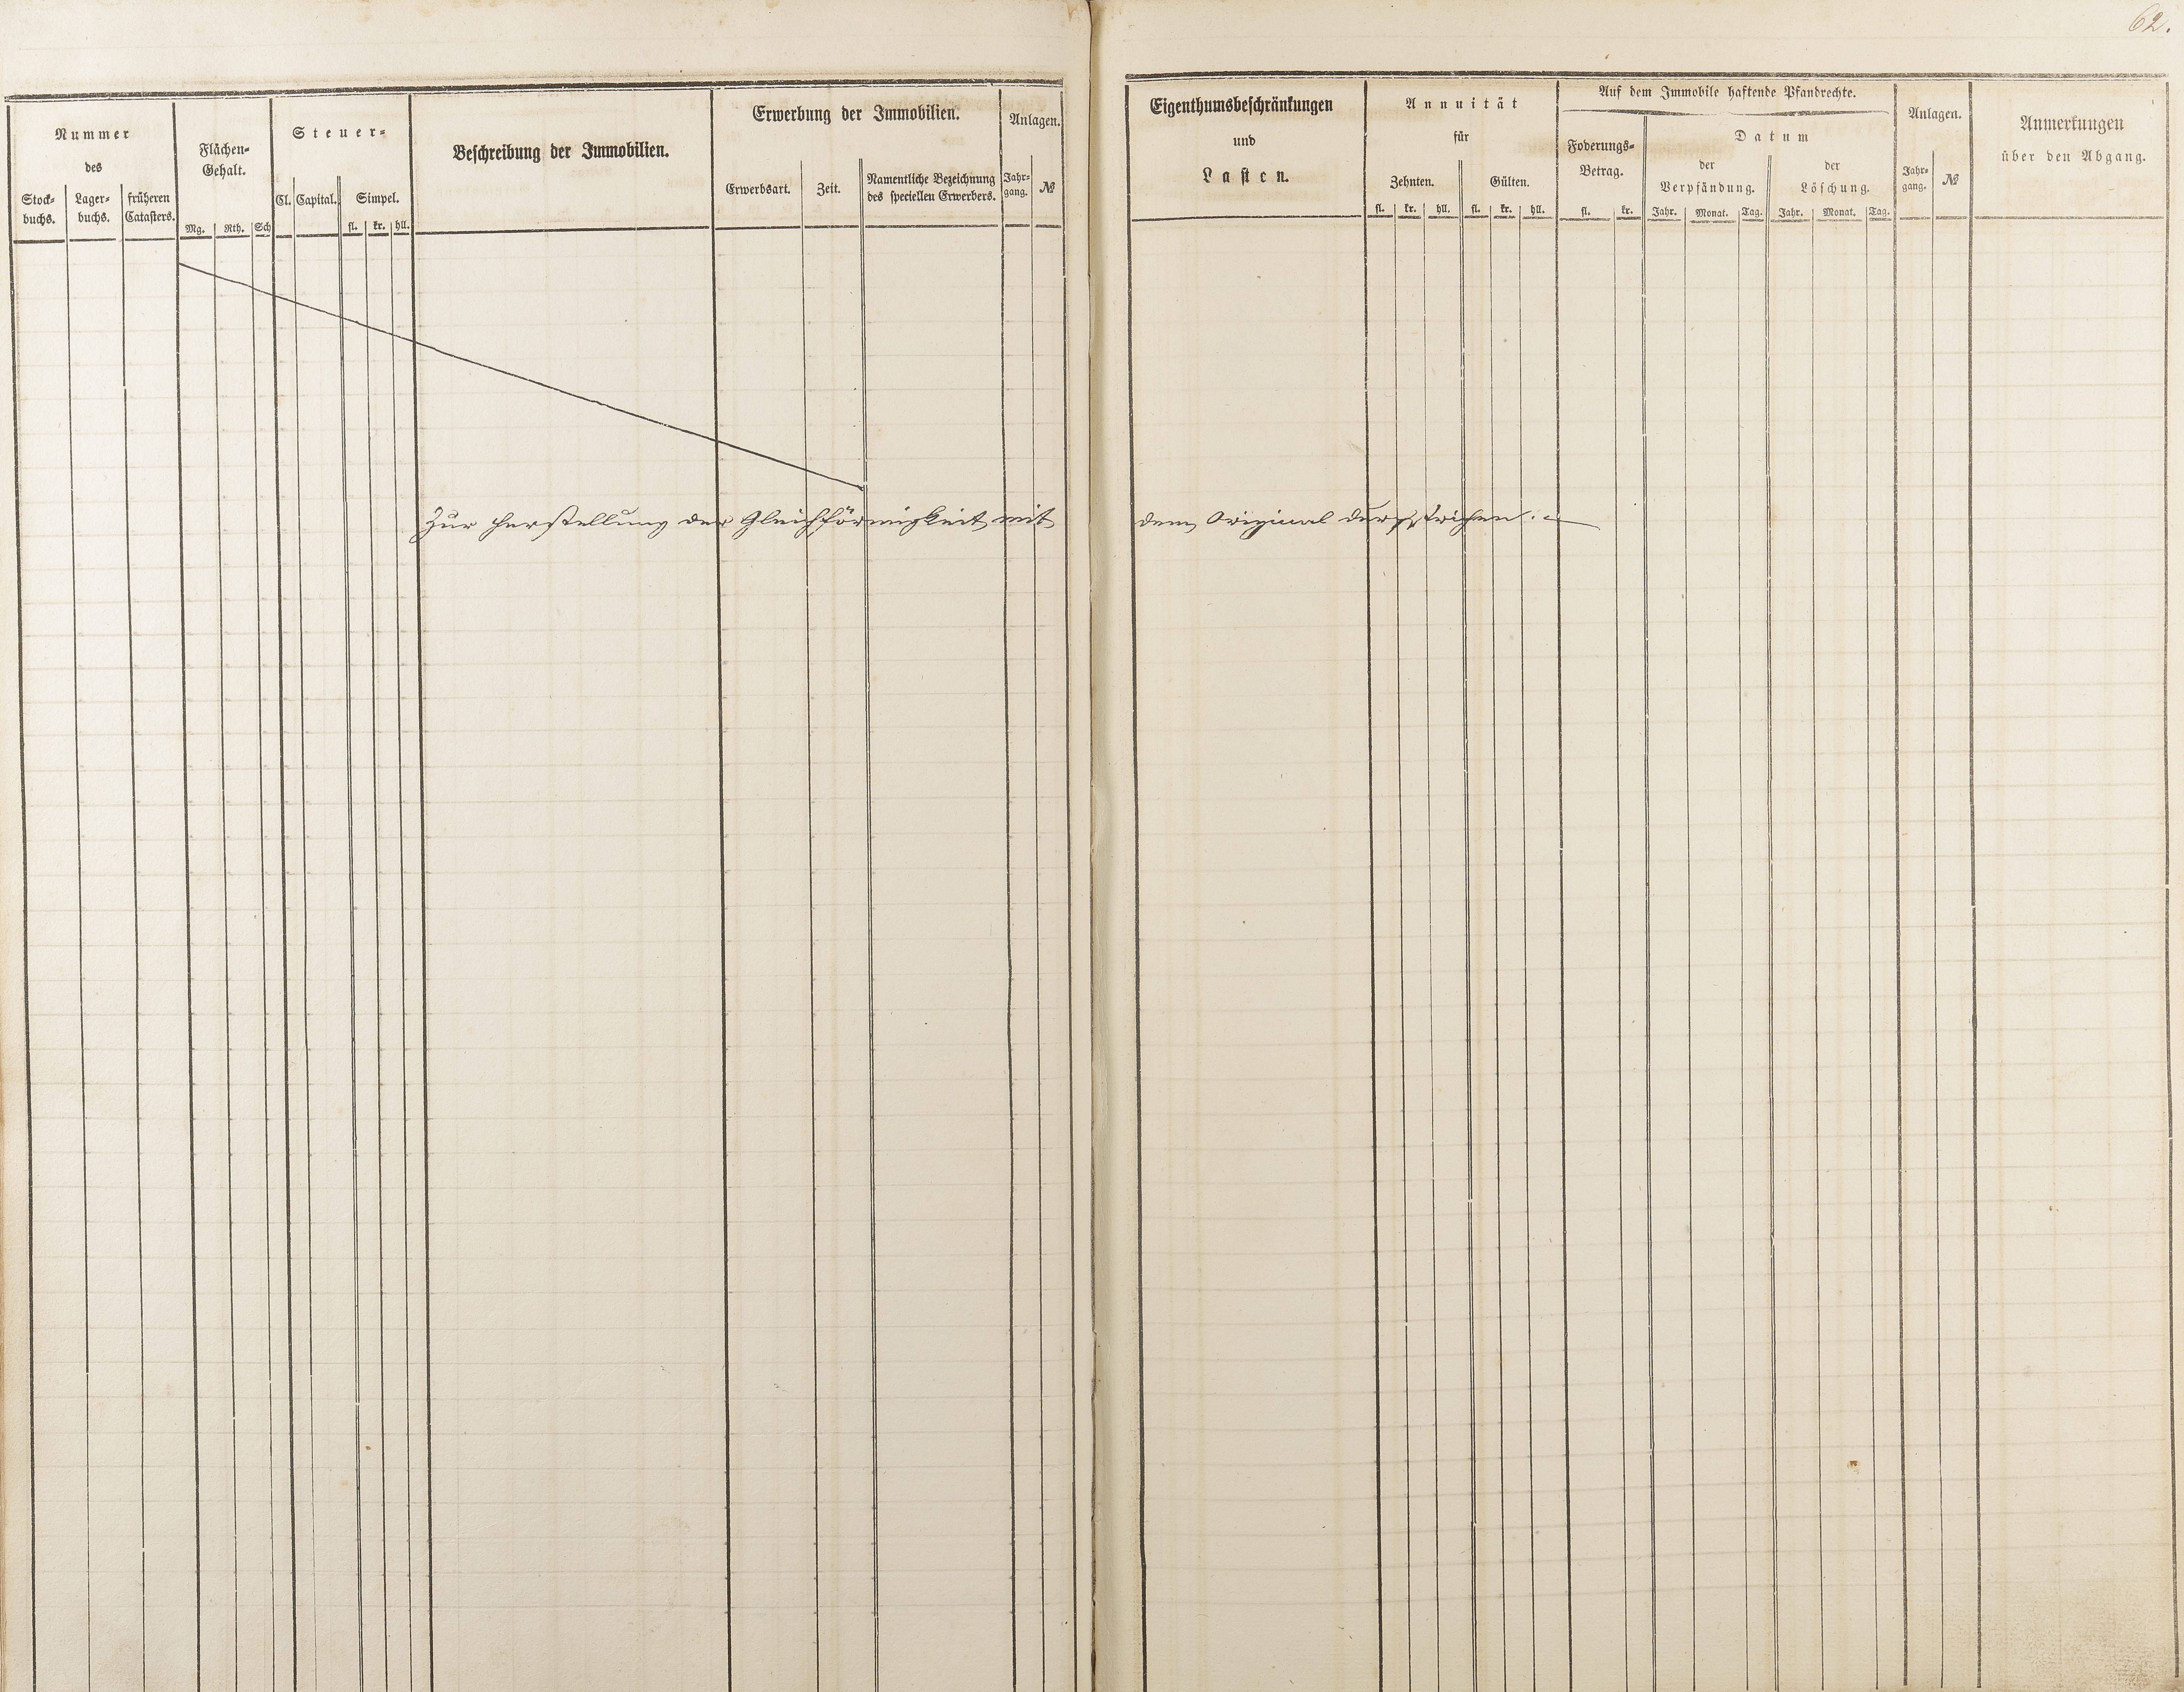 62.
Nummer
des
Stock-
buchs.
Lager-
buchs.
früheren
Catasters.
Flächen-
Gehalt.
Mg. Rth. Sch
Steuer-
Cl. Capital. Simpel.
fl. kr. hll.
Beschreibung der Immobilien.
Erwerbung der Immobilien.
Erwerbsart. Zeit.
Namentliche Bezeichnung
des speciellen Erwerbers.
Anlagen.
Jahr-
gang.
№
Eigenthumsbeschränkungen
und
Lasten.
Annuität
für
Zehnten. Gülten.
fl. kr. hll. fl. kr. hll.
Auf dem Immobile haftende Pfandrechte.
Foderungs-
Betrag.
fl. kr.
Datum
der
Verpfändung.
Jahr. Monat. Tag.
der
Löschung.
Jahr. Monat. Tag.
Anlagen.
Jahr-
gang.
№
Anmerkungen
über den Abgang.
Zur Herstellung der Gleichförmigkeit mit dem Original durchstrichen.